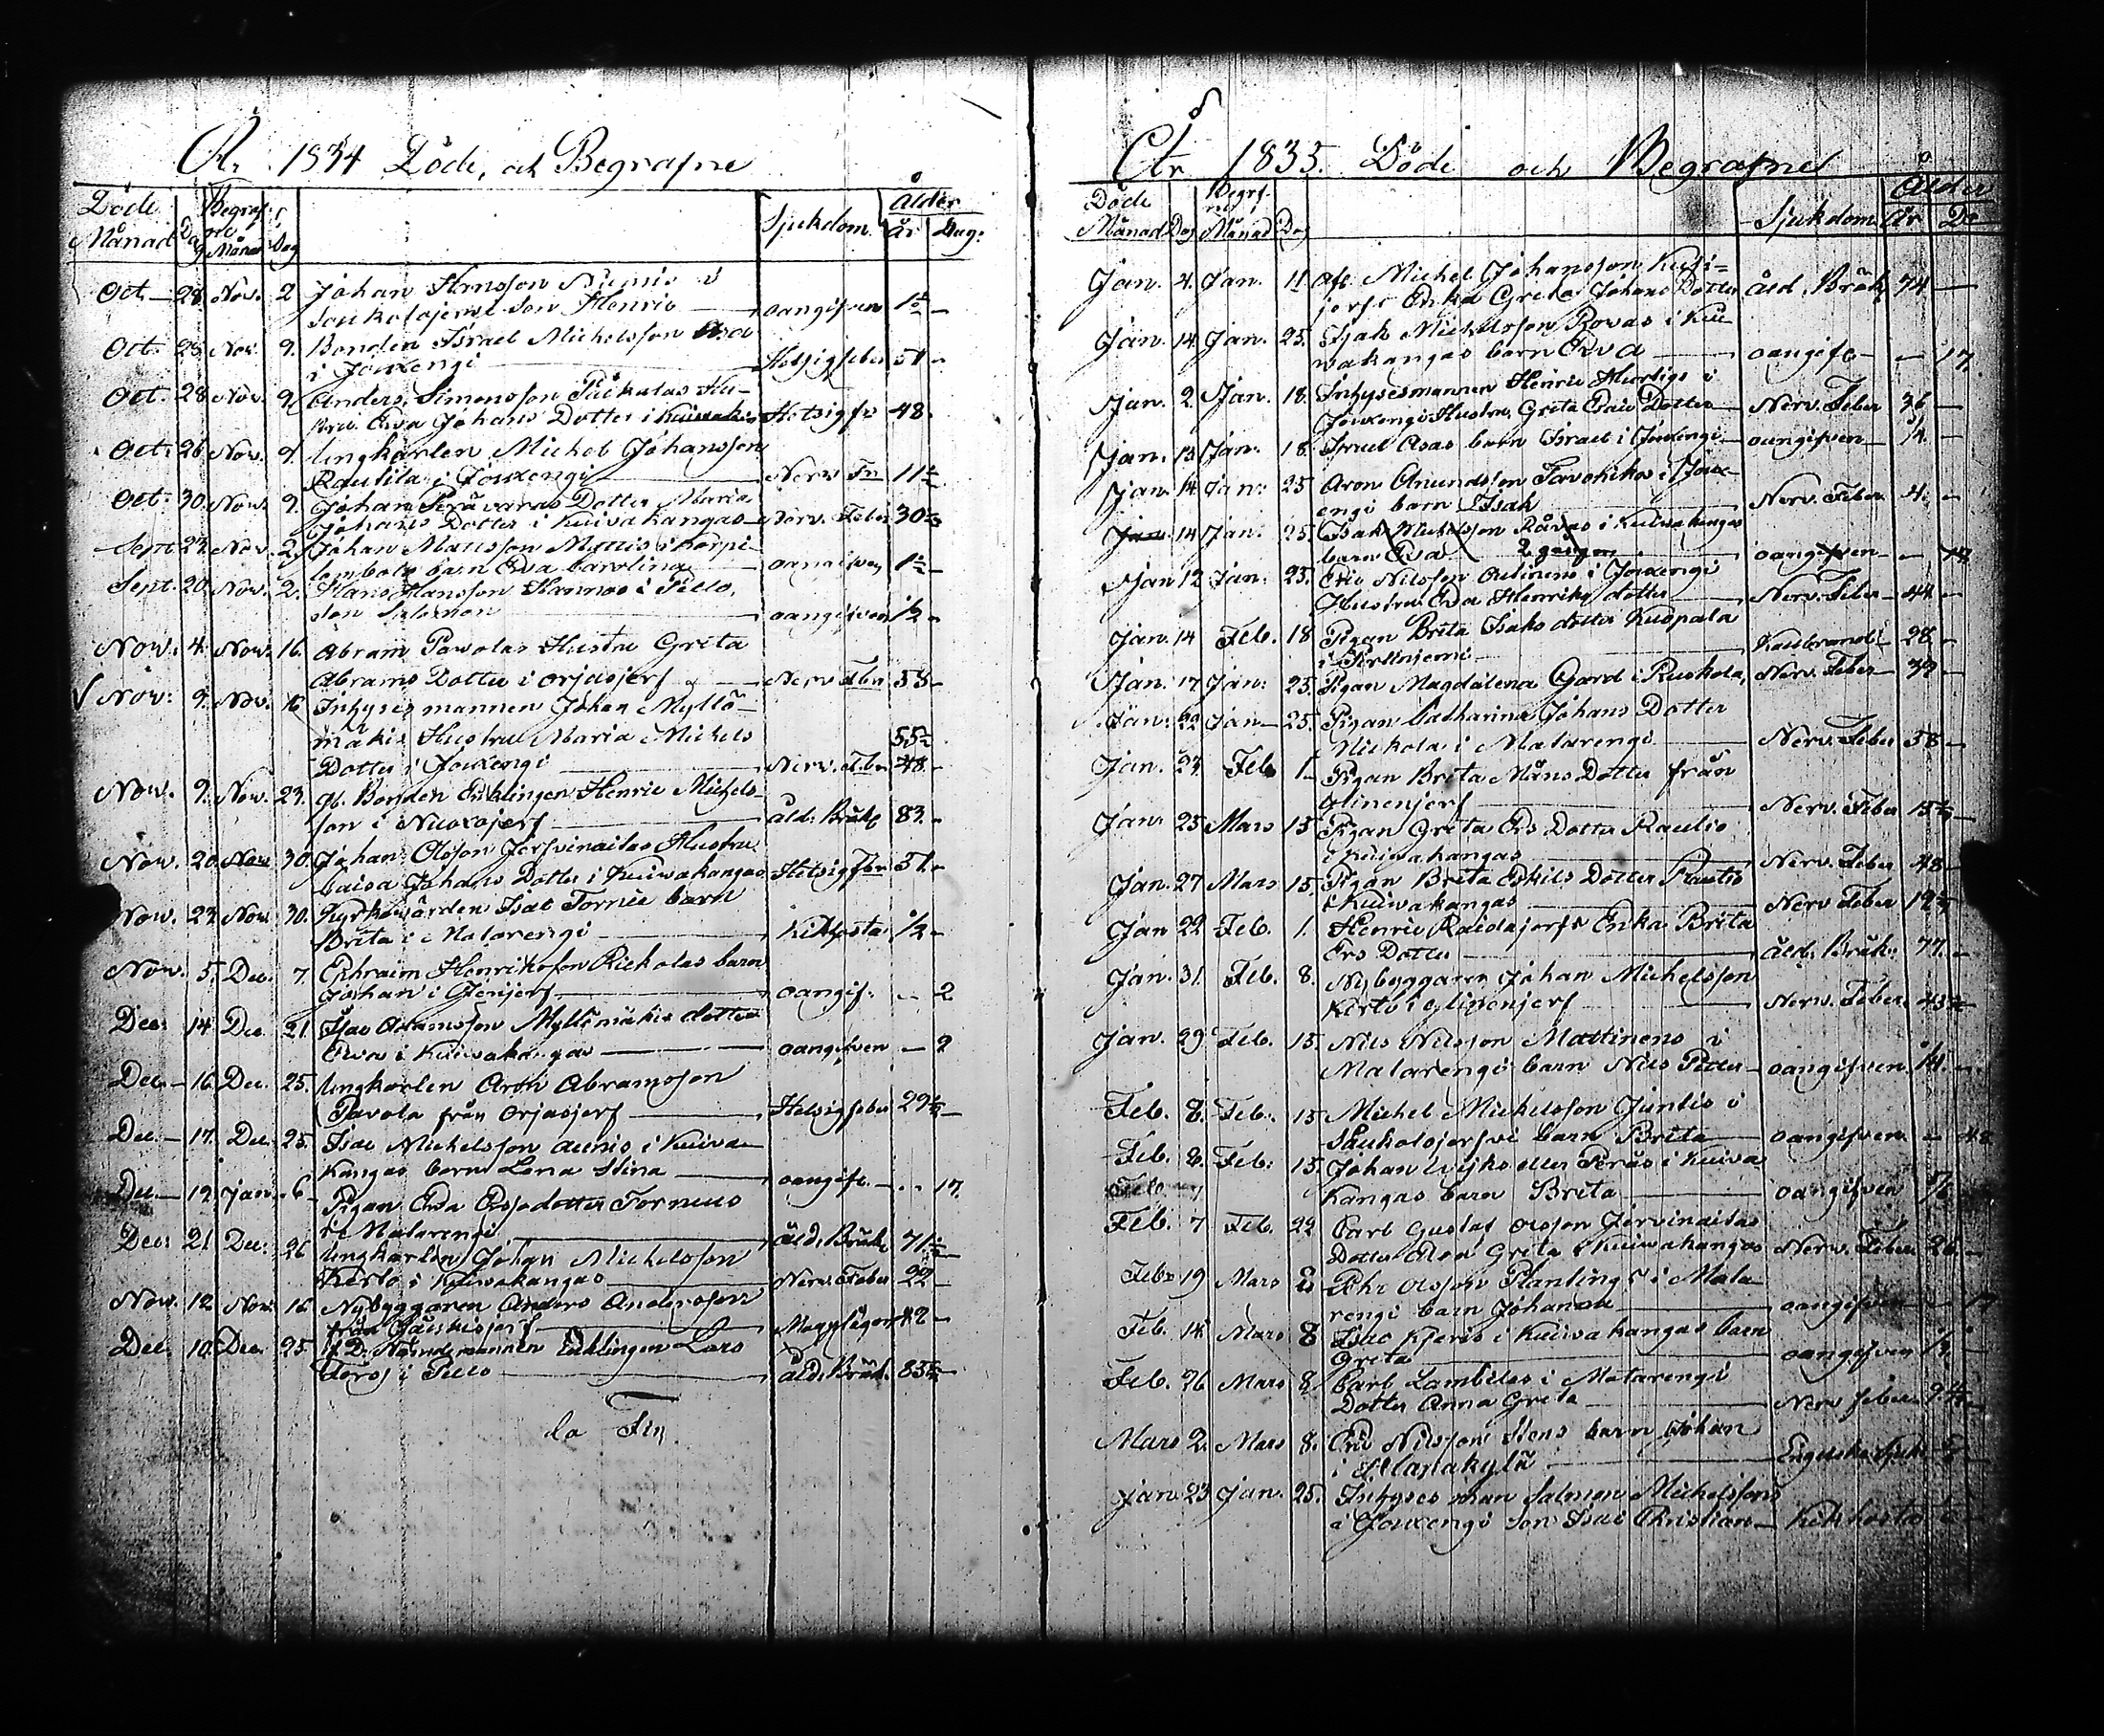 År 1834 Döde, och Begrafne
Döde Månad Dag Begrafne Månad Dag Sjukdom Ålder År Dag:
Oct. 28. Nov. 2 Johan
Saukolojerwi Son Henric oangifven
Oct. 25 Nov. 9. Bonden Israel Michelsson Asa
i Jouxengi Hetsigfeber 51
Oct. 28 Nov. 9 Anders Simonsson Hu-
stru Ewa Johans Dotter i Hetsigfr 48.
Oct. 26 Nov. 9. Ungkarlen Michel Johansson
Rautila i Jouxengi Nerv Fr 11
Oct. 30. Nov. 9. Johan Perävaras Dotter Maria
Johans Dotter i Kuivakangas Nerv. Feber 30
Sept 27. Nov. 2 Johan Mattsson Mattis i Korpi-
lombolo barn Ewa Carolina oangifven
Sept. 20. Nov. 2. Hans Hansson Hannas i Pello,
Son Salomon oangifven 1/2
Nov. 4 Nov. 16 Abram Pavolas Hustru Greta
Abrams Dotter i Orjasjerf Nerv Fber 55
Nov: 9. Nov. 16 Inhyses mannen Johan Myllö-
mäkis Hustru Maria Michels
55
Dotter i Jouxengi Nerv. Fber 48.
Nov. 9. Nov. 23. Bonden Henric Michels-
son i Nuoxojerf åld: Bräk 83.
Nov. 20. Nov 30. Johan Olsson Jerfvinaitas Hustru
Caisa Johans Dotter i Kuivakangas Hetsigfber 51
Nov. 23 Nov. 30. Kyrkowärden Isac Tornee barn
Brita i Matarengi Kikhosta 1/2
Nov. 5. Dec. 7. Ephraim Henriksson Rickolas barn
Johan i oangif. 2
Dec. 14. Dec. 21 Isac Abramsson Myllimäkis dotter
Ewa i Kuivakangas oangifven 2
Dec. 16 Dec. 25. Ungkarlen Aron Abramsson
Pavola från Orjasjerf Hetsigfeber 29
Dec. 17. Dec. 25. Isac Michelsson i Kuiva
kangas barn Lena Stina oangif. 17.
Dec. 19. Jan. 6 Pigan Ewa Tornæus
i Matarengi åld. Bräk. 71
Dec. 21 Dec. 26 Ungkarlen Johan Michelsson
Kerto i Kuivakangas Nerv. Feber 22
Nov. 12. Nov. 16 Nybyggaren Anders Andersson
från 42
Dec. 10. Dec. 25 Nämndemannen Enklingen Lars
i Pello åld. Bräk. 83
la Fin
År 1835. Döde och Begrafne
Döde Månad Dag Begrafne Månad Dag Sjukdom Ålder År Da
Jan. 4. Jan. 11. Afl. Michel Johansson
jerfs Enka Greta Johans Dotter åld. Bräk 74
Jan. 14 Jan. 25. Isak Michelsson Rovas i Kui
wakangas barn Ewa oangifv 17.
Jan. 2. Jan. 18. Inhysesmannen Henric Hurtigs i
Jouxengi Hustru Greta Dotter Nerv. Feber 36
Jan. 13 Jan. 18. Israel Asas barn Israel i Jouxengi oangifven
Jan. 14 Jan. 25 Aron Anundsson i Joux-
engi barn Isak Nerv. Feber. 4.
Jan. 14 Jan. 25. Isak Michelsson Rovas i Kuivakangas
barn Ewa 2 gången oangifven 17.
Jan 12 Jan. 25. Eric Nilsson i Jouxengi
Hustru Ewa Henriks dotter Nerv. Feber 44
Jan. 14 Feb. 18 Pigan Brita Isaks dotter Kuopala
i Kallbrand 28
Jan. 17 Jan: 25. Pigan Magdalena Gard i Ruskola, Nerv. Feber 39
Jan. 22 Jan 25. Pigan Catharina Johans Dotter
Nickola i Matarengi Nerv. Feber 58
Jan. 27 Feb 1. Pigan Brita Måns Dotter från
Nerv. Feber 15
Jan. 25 Mars 15 Pigan Greta Ers Dotter Rautio
i Kuivakangas Nerv. Feber 48
Jan. 27 Mars 15. Pigan Brita Eskils Dotter Rautio
i Kuivakangas Nerv Feber 12
Jan 22 Feb. 1. Henric Raidajerfs Enka Brita
Ers Dotter åld. Bräk: 77.
Jan. 31. Feb. 8. Nybyggaren Johan Michelsson
Kerto i Nerv. Feber. 43
Jan. 29 Feb. 15. Nils Nilsson Mattinens i
Matarengi barn Nils Petter oangifven
Feb. 8. Feb. 15 Michel Michelsson Juntis i
Saukolojerfvi barn Brita oangifven 48
Feb. 8. Feb: 15. Johan eller i Kuiva
kangas barn Brita oangifven
Feb. 7 Feb. 22 Carl Gustaf Olsson Jervinaitas
Dotter Greta i Kuivakangas Nerv. Feber 26.
Feb 19 Mars 8 Pehr Olsson Plantings i Mata
rengi barn Johanna oangifven
Feb. 14 Mars 8 Isac i Kuivakangas barn
Greta oangifven
Feb. 26 Mars 8 Carl Lambelas i Matarengi
Dotter Anna Greta Nerv feber
Mars 2. Mars 8. Eric Nilsson barn Johan
i Engelska Sjuk.
Jan. 23 Jan. 25. Inhyses man Salmon Michelssons
i Jouxengi Son Isac Christian Kikhosta